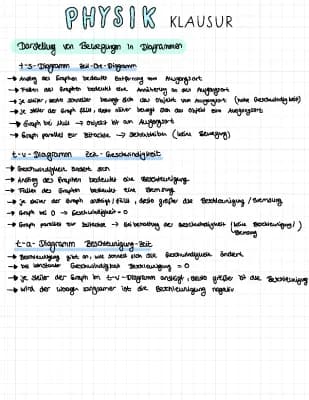 PHYSIK KLAUSUR
Darstellung von Bewegungen in Diagrammen
t-s-Diagramm Zeit-Ort-Diagramm
→ Anstieg des Graphen bedeutet Entfernung vom Ausgangsort
→ Fallen des Graphen bedeutet eine Annäherung an den Ausgangsort
→ Je steiler, desto schneller bewegt sich das Objekt vom Ausgangsort (hohe Geschwindigkeit)
→ Je steiler der Graph fällt, desto näher bewegt sich das Objekt am Ausgangsort
→ Graph bei Null → Objekt ist am Ausgangsort
→ Graph parallel zur Zeitachse → Stehenbleiben (keine Bewegung)
t-v-Diagramm Zeit-Geschwindigkeit
→ Geschwindigkeit ändert sich
→ Anstieg des Graphen bedeutet eine Beschleunigung
→ Fallen des Graphen bedeutet eine Bremsung
→ Je steiler der Graph ansteigt/fällt, desto größer die Beschleunigung/Bremsung
→ Graph bei 0 → Geschwindigkeit = 0
→ Graph parallel zur Zeitachse → Beibehaltung der Geschwindigkeit (keine Beschleunigung/
Bremsung)
t-a-Diagramm Beschleunigung-Zeit
→ Beschleunigung gibt an, wie schnell sich die Geschwindigkeit ändert
→ bei konstanter Geschwindigkeit Beschleunigung = 0
→ Je steiler der Graph im t-v-Diagramm ansteigt, desto größer ist die Beschleunigung
→ Wird der Wagen langsamer ist die Beschleunigung negativ